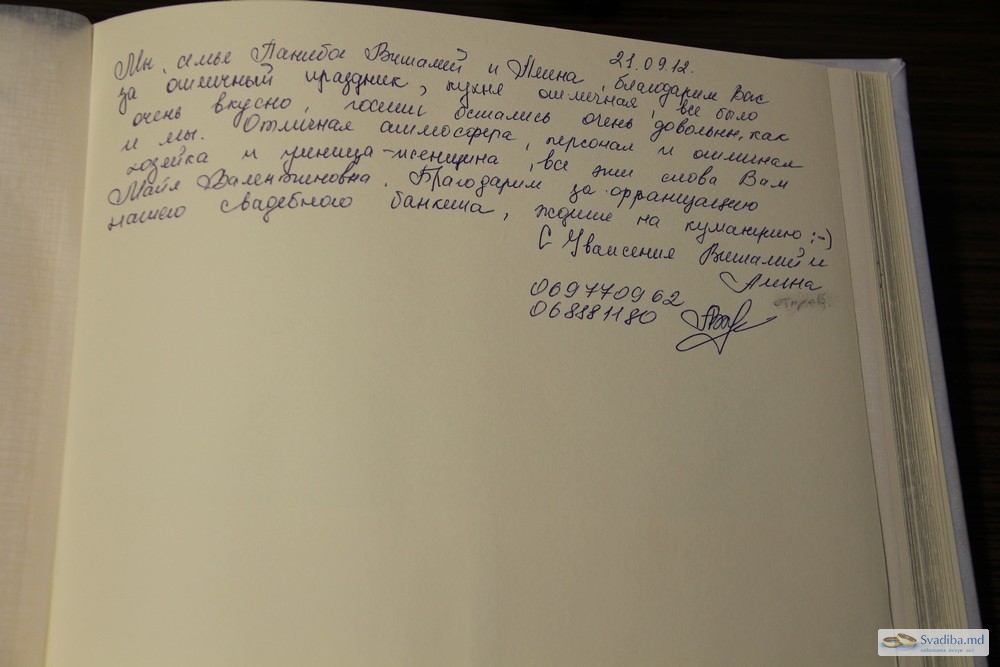 21.09.12.
Мы, семье Паниба Виталий и Алина, благодарим Вас
за отличный праздник, кухня отличная, все было
очень вкусно, гости остались очень довольны, как
и мы. Отличная атмосфера, персонал и отличная
хозяйка и умница-женщина, все эти слова Вам
Майя Валентиновна. Благодарим за организацию
нашего свадебного банкета, ждите на кумэтрию :-)
С Уважение Виталий и
Алина
069770962
068881180
Svadiba.md